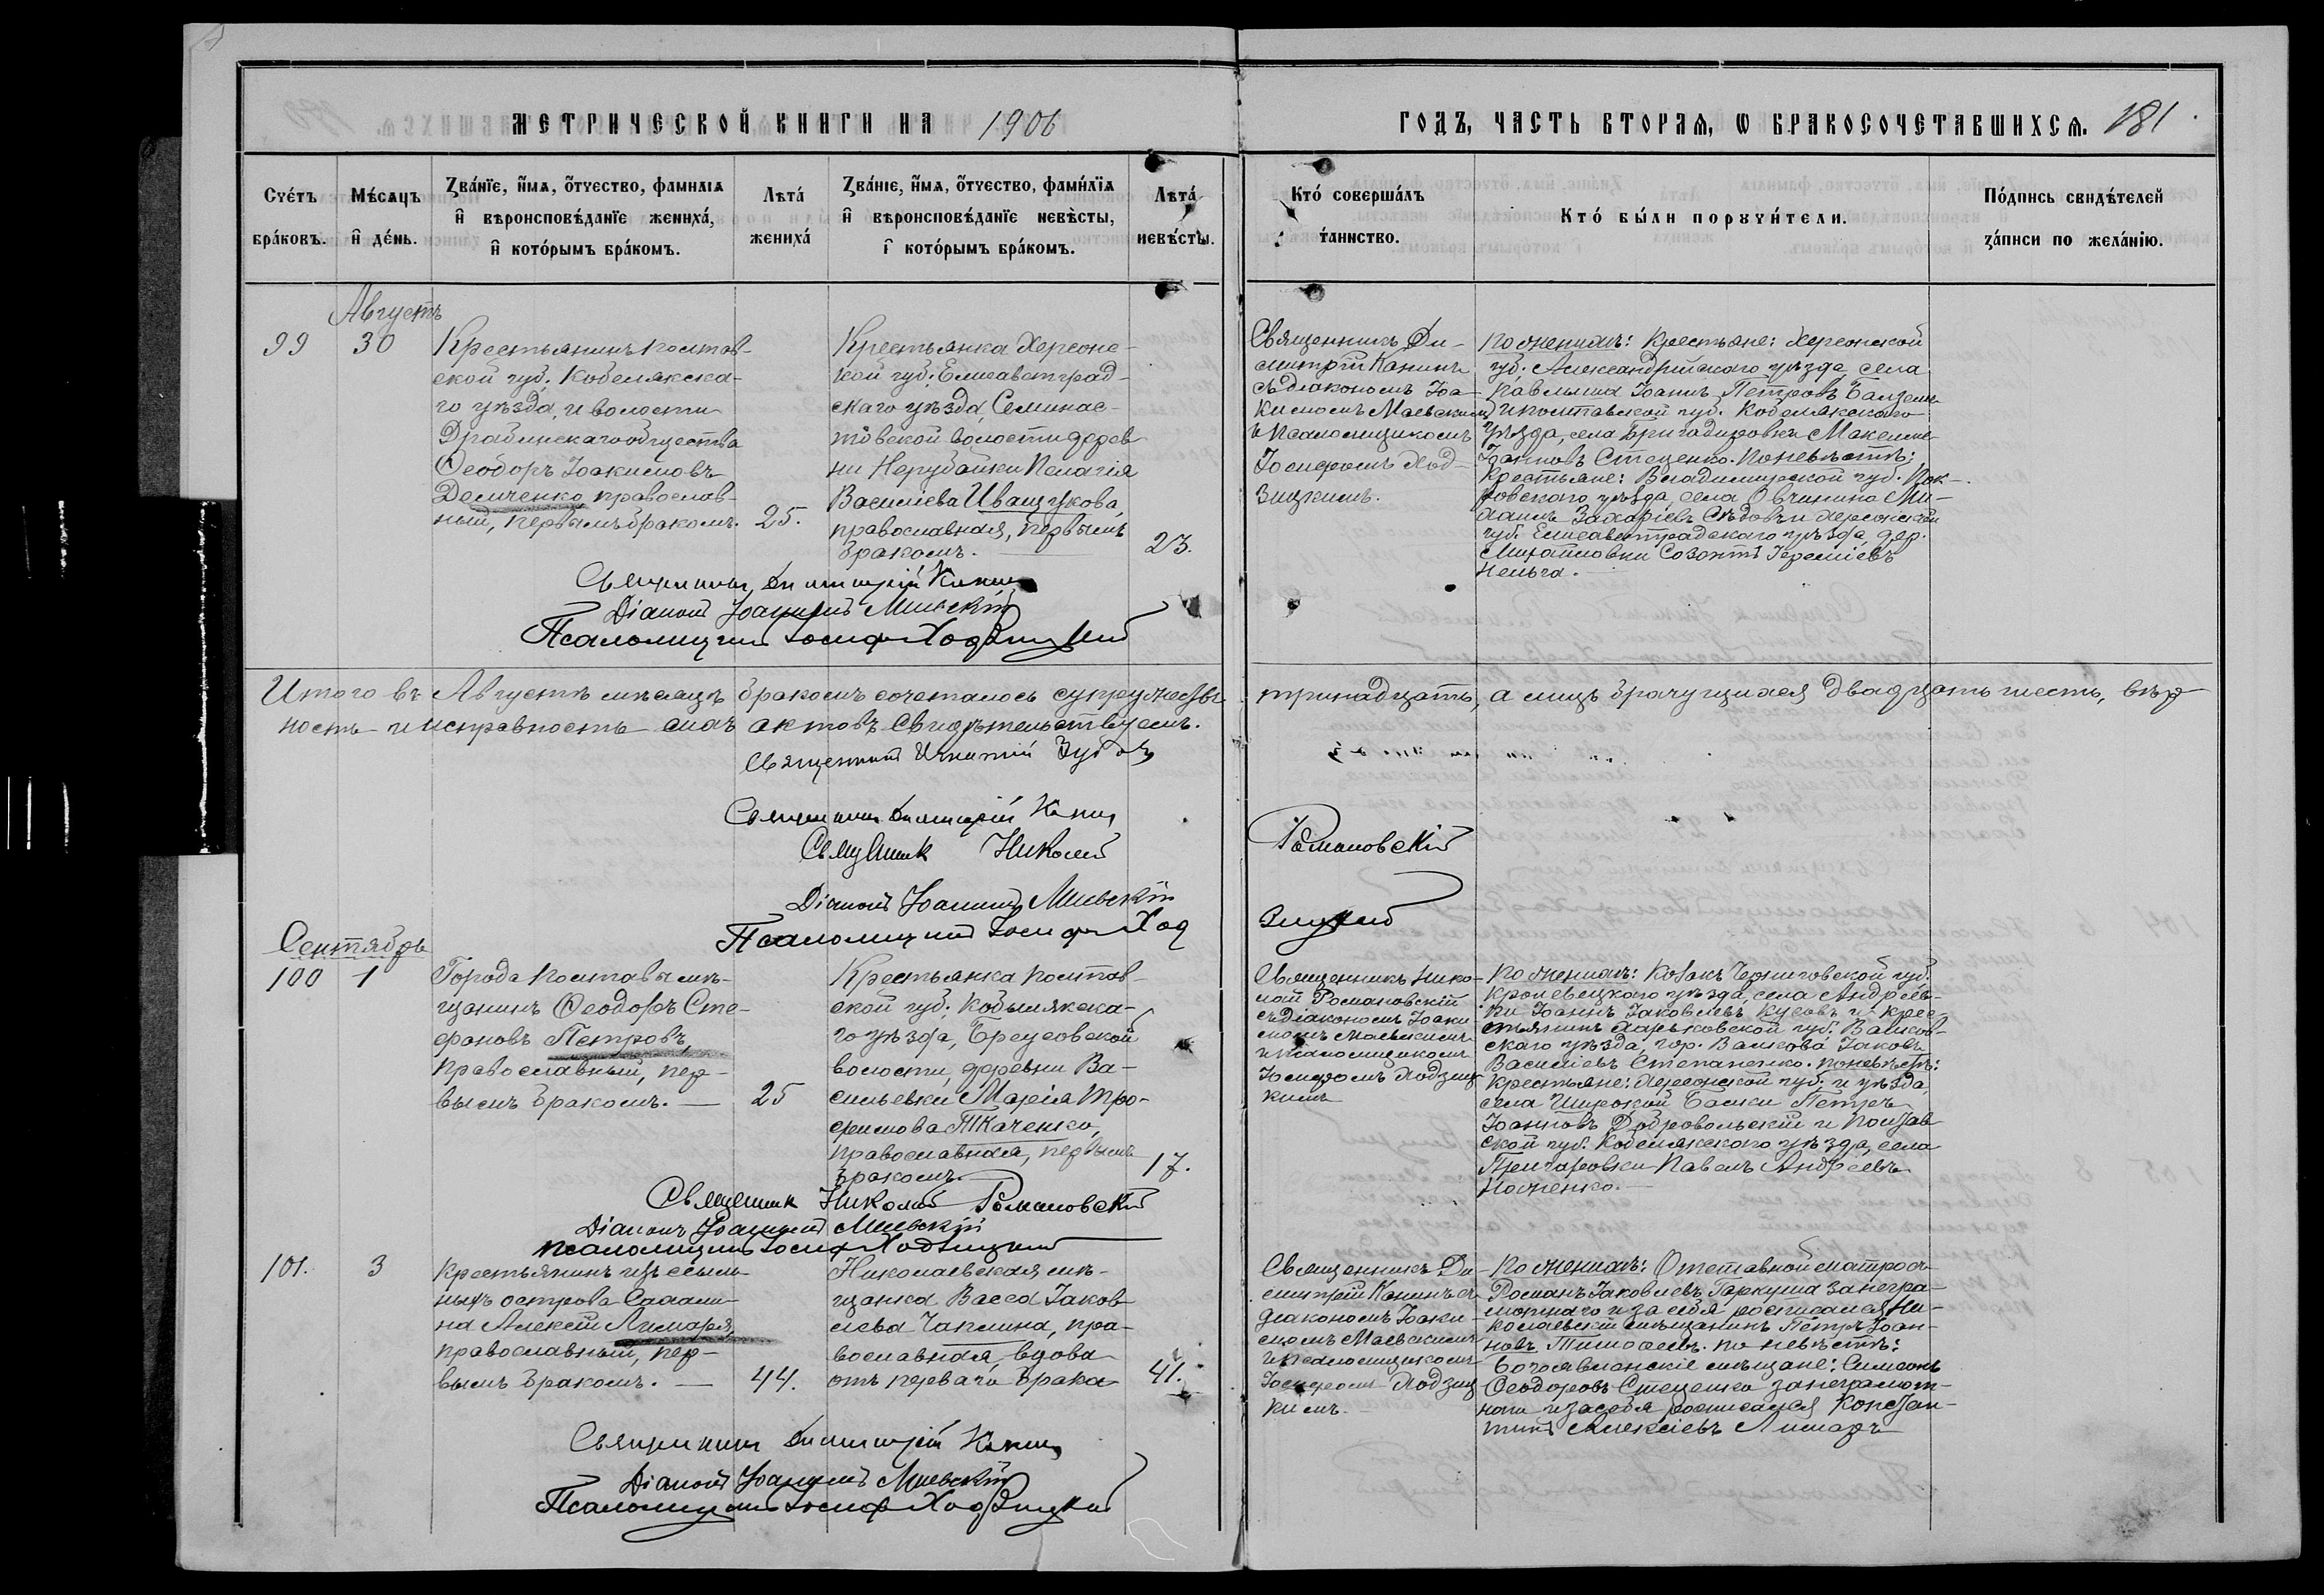 МЕТРИЧЕСКОЙ КНИГИ НА 1906
ГОДЪ, ЧАСТЬ ВТОРАЯ, Ѡ БРАКОСОЧЕТАВШИХСЯ. 181
Счетъ браковъ.
Мѣсяцъ и день.
Званіе, имя, отчество, фамилія и вѣроисповѣданіе жениха, и которымъ бракомъ.
Лѣта жениха
Званіе, имя, отчество, фамилія и вѣроисповѣданіе невѣсты, и которымъ бракомъ.
Лѣта невѣсты.
Кто совершалъ таинство.
Кто были поручители.
Подпись свидѣтелей записи по желанію.
Августъ
99 30
Крестьянинъ Полтав-
ской губ. Кобелякска-
го уѣзда, и волости
Драбинскаго общества
Ѳеодоръ Іоакимовъ
Демченко, православ-
ный, первымъ бракомъ. 25.
Крестьянка Херсонс-
кой губ. Елисаветград-
скаго уѣзда, Семинас-
товской волости дерев-
ни Нерубайки Пелагія
Василіева Иващукова,
православная, первымъ
бракомъ. 23.
Священникъ Ди-
митрій Канинъ
съ діакономъ Іоа-
кимомъ Маевскимъ
и псаломщикомъ
Іосифомъ Ход-
зицкимъ.
По женихѣ: Крестьяне: Херсонской
губ. Александрійскаго уѣзда, села
Павлыша Іоаннъ Петровъ
и Полтавской губ. Кобелякскаго
уѣзда, села Бригадировки Максимъ
Іоанновъ Стеценко. По невѣстѣ:
Крестьяне: Владимирской губ. Пок-
ровскаго уѣзда, села Овчинина Ми-
хаилъ Захаріевъ Сѣдовъ и Херсонской
губ. Елисаветградскаго уѣзда, дер.
Михайловки Созонтъ Іереміевъ
Священникъ Димитрій Канинъ
Діаконъ Іоакимъ Маевскій
Псаломщикъ Іосифъ Ходзицкій
Итого въ Августѣ мѣсяцѣ бракомъ сочеталось супружествъ тринадцать, а лицъ брачущихся двадцать шесть, вѣр-
ность и исправность сихъ актовъ свидѣтельствуемъ.
Священникъ Игнатій
Священникъ Димитрій Канинъ
Священникъ Николай Романовскій
Діаконъ Іоакимъ Маевскій
Псаломщикъ Іосифъ Ходзицкій
Сентябрь
100 1
Города Полтавы мѣ-
щанинъ Ѳеодоръ Сте-
фановъ Петровъ,
православный, пер-
вымъ бракомъ. 25
Крестьянка Полтав-
ской губ. Кобылякска-
го уѣзда, Бреусовской
волости, деревни Ва-
сильевки Марія Тро-
фимова Ткаченко,
православная, первымъ
бракомъ. 17.
Священникъ Нико-
лай Романовскій
съ діакономъ Іоаки-
момъ Маевскимъ
и псаломщикомъ
Іосифомъ Ходзиц-
кимъ
По женихѣ: Козакъ Черниговской губ.
Кролевецкаго уѣзда, села Андреев-
ки Іоаннъ Іаковлевъ Кусовъ и крес-
тьянинъ Харьковской губ. Валков-
скаго уѣзда, гор. Валкова Іаковъ
Василіевъ Степаненко. По невѣстѣ:
Крестьяне: Херсонской губ. и уѣзда,
села Широкой Балки Петръ
Іоанновъ Добровольскій и Полтав-
ской губ. Кобелякскаго уѣзда, села
Павелъ Андреевъ
Ноженко.
Священникъ Николай Романовскій
Діаконъ Іоакимъ Маевскій
Псаломщикъ Іосифъ Ходзицкій
101. 3
Крестьянинъ изъ ссыль-
ныхъ острова Сахали-
на Алексій Лимаря,
православный, пер-
вымъ бракомъ. 44.
Николаевская мѣ-
щанка Васса Іаков-
лева Чаплина, пра-
вославная, вдова
отъ перваго брака 41.
Священникъ Ди-
митрій Канинъ съ
діакономъ Іоаки-
момъ Маевскимъ
и псаломщикомъ
Іосифомъ Ходзиц-
кимъ.
По женихѣ: Отставной матросъ
Романъ Іаковлевъ Гаркуша за негра-
мотнаго и за себя росписался Ни-
колаевскій мѣщанинъ Петръ Іоан-
новъ Тимофеевъ. По невѣстѣ:
Богоявленскіе мѣщане: Симеонъ
Ѳеодоровъ Стеценко за неграмот-
наго и за себя росписался Констан-
тинъ Алексіевъ Лимаръ
Священникъ Димитрій Канинъ
Діаконъ Іоакимъ Маевскій
Псаломщикъ Іосифъ Ходзицкій